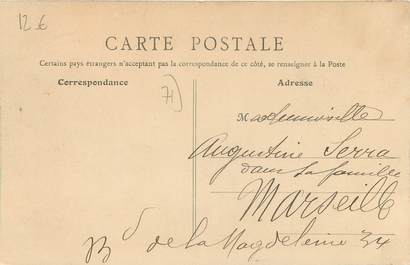 12 €
CARTE POSTALE
Certains pays étrangers n'acceptant pas la correspondance de ce côté, se renseigner à la Poste
Correspondance
Adresse
Mademoiselle
Augustine Serra
dans sa famille
Marseille
Bd de la Magdeleine 34